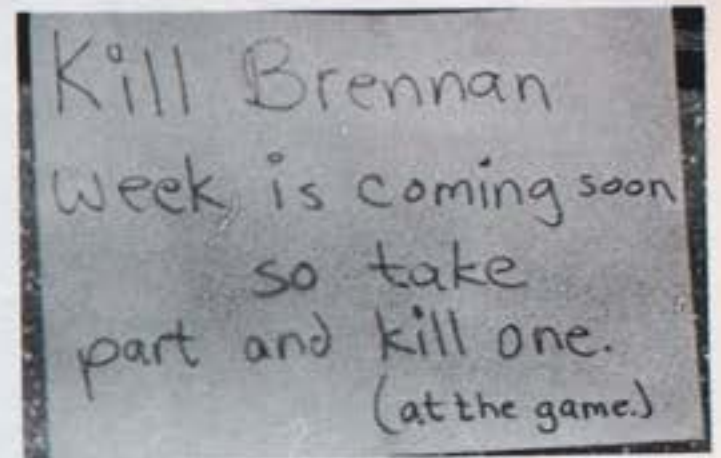 Kill Brennan
week is coming soon
so take
part and kill one.
(at the game.)